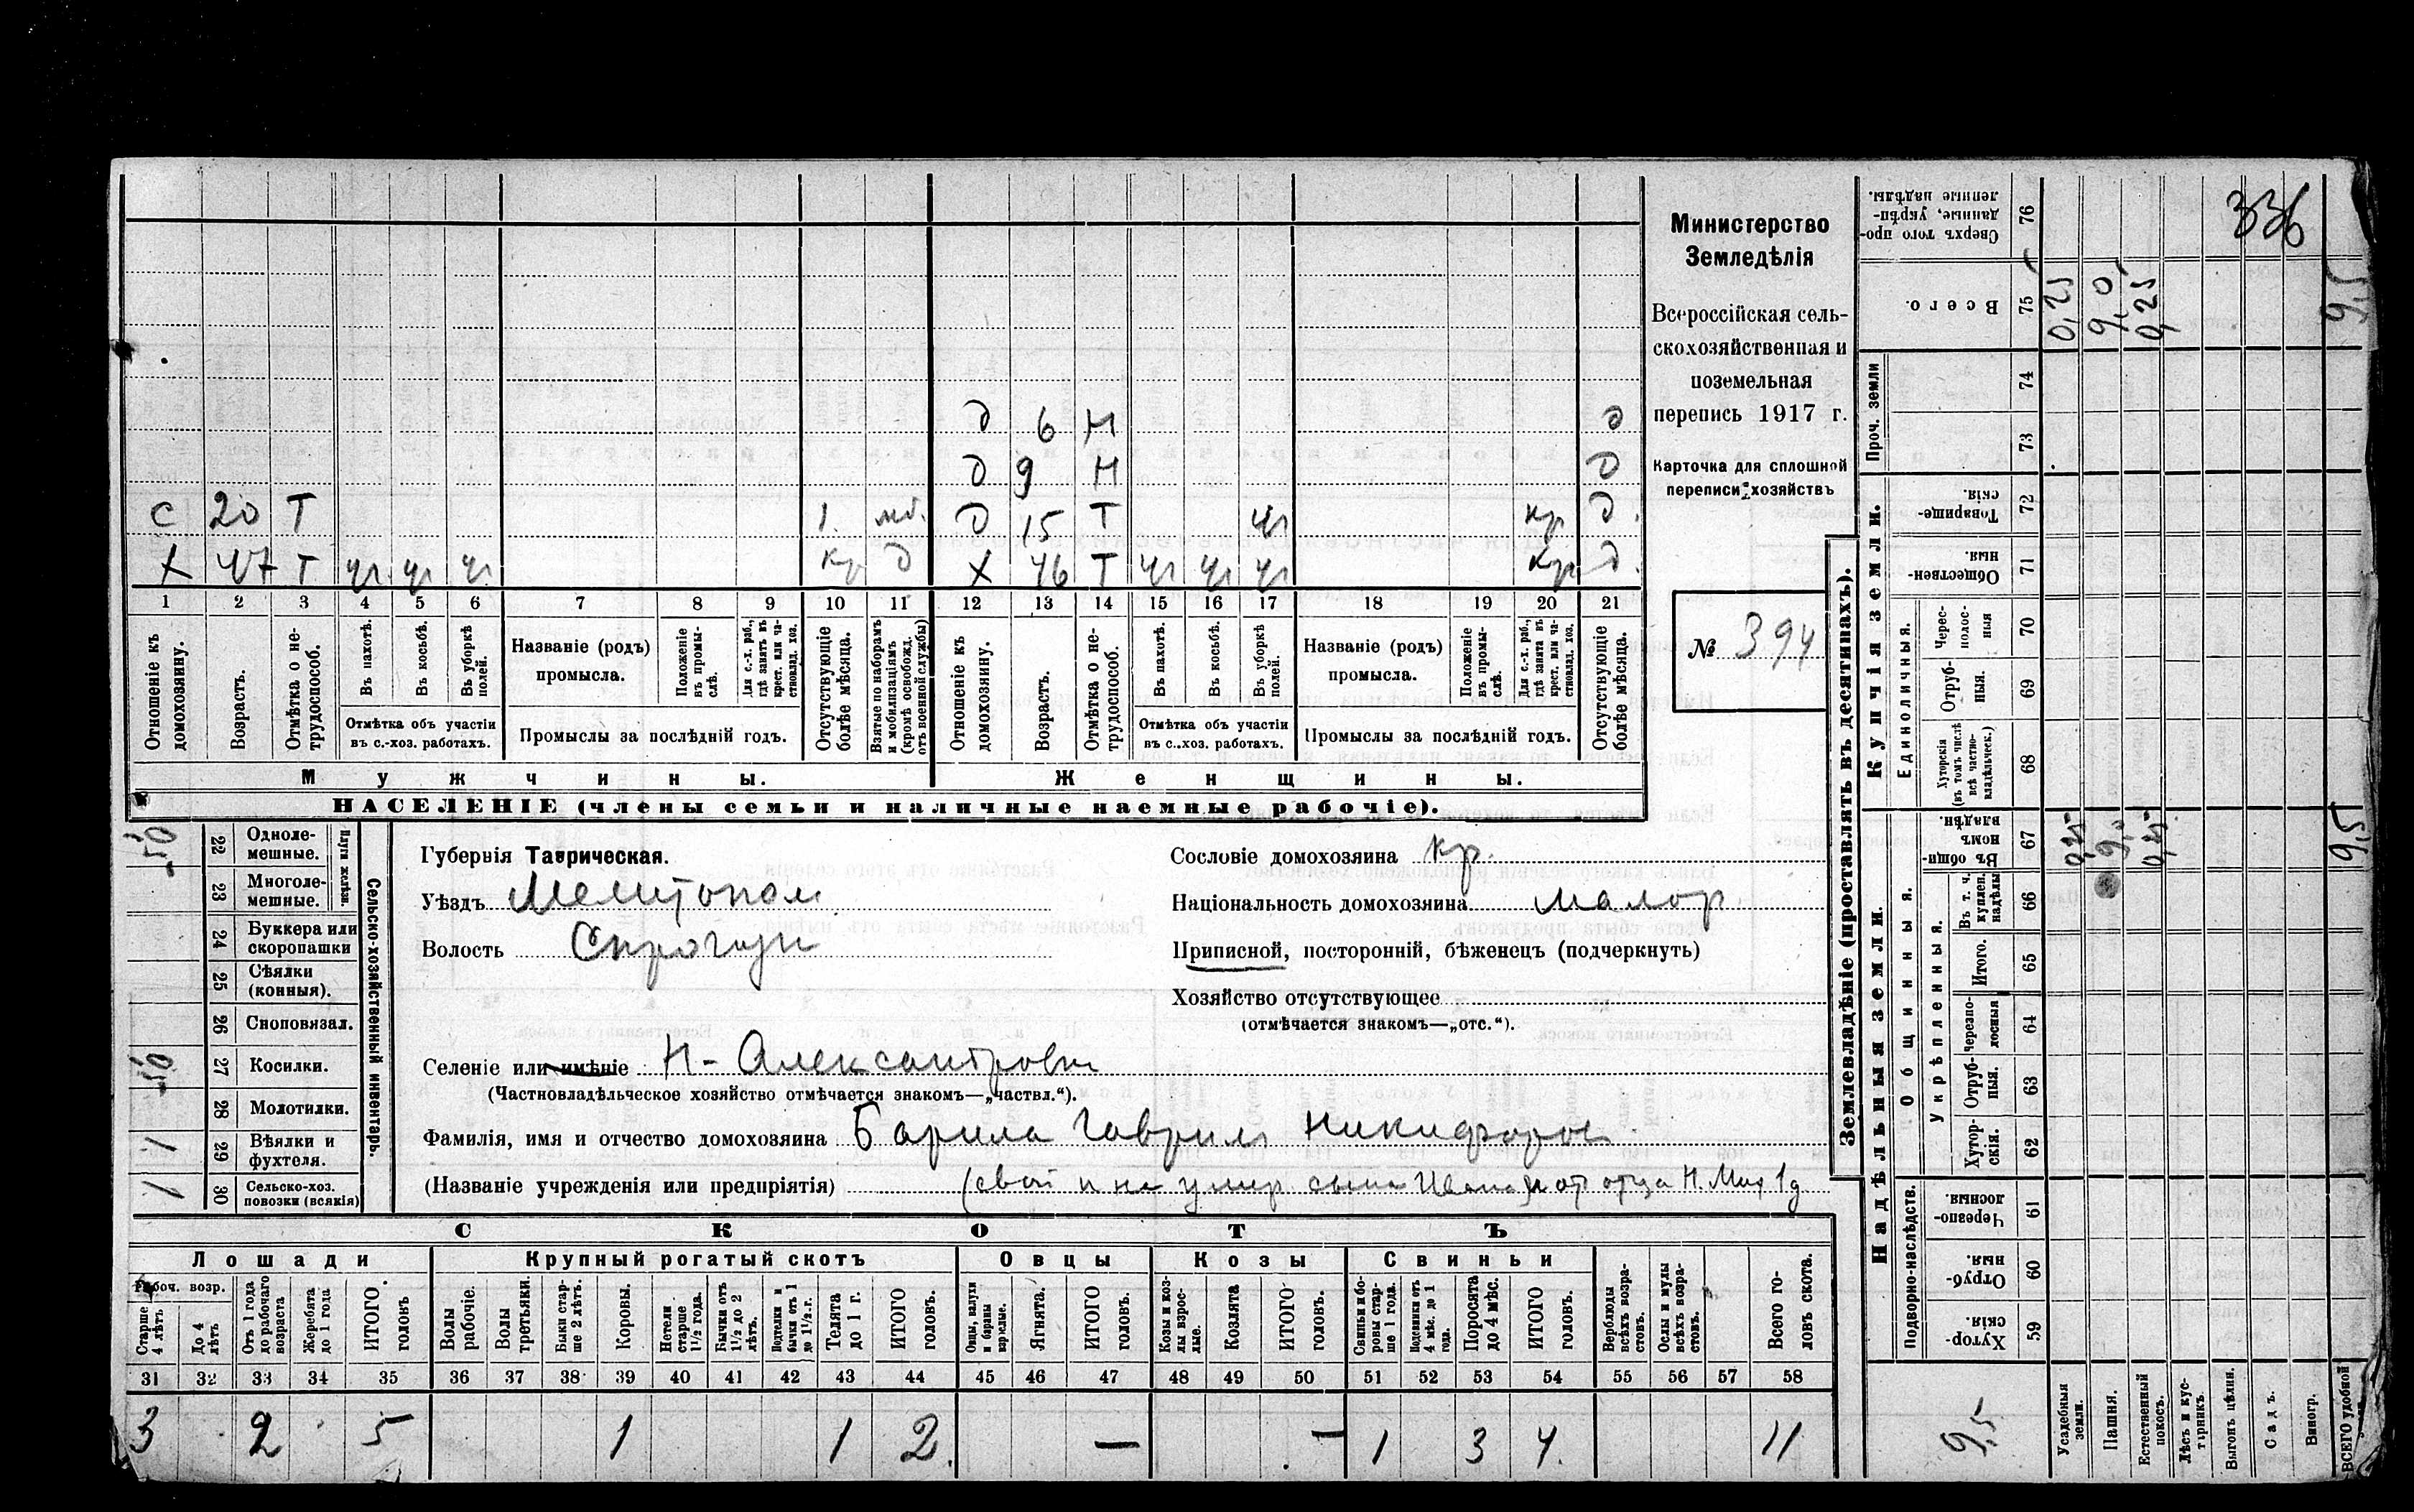 с 20 Т 1. мб. д 15 Т чл кр д.
х 47 Т чл чл чл кр д х 46 Т чл чл чл кр д.
д 9 Н д
д 6 Н д
1 2 3 4 5 6 7 8 9 10 11 12 13 14 15 16 17 18 19 20 21
Отношеніе къ домохозяину.
Возрастъ.
Отмѣтка о нетрудоспособ.
Въ пахотѣ.
Въ косьбѣ.
Въ уборкѣ полей.
Отмѣтка объ участіи
въ с.-хоз. работахъ.
Названіе (родъ)
промысла.
Положеніе въ промыслѣ.
Для с.-х. раб., гдѣ занятъ въ крест. или частновлад. хоз.
Промыслы за послѣдній годъ.
Отсутствующіе болѣе мѣсяца.
Взятые по наборамъ и мобилизаціямъ (кромѣ освобожд. отъ военной службы)
Отношеніе къ домохозяину.
Возрастъ.
Отмѣтка о нетрудоспособ.
Въ пахотѣ.
Въ косьбѣ.
Въ уборкѣ полей.
Отмѣтка объ участіи
въ с.-хоз. работахъ.
Названіе (родъ)
промысла.
Положеніе въ промыслѣ.
Для с.-х. раб., гдѣ занята въ крест. или частновлад. хоз.
Промыслы за послѣдній годъ.
Отсутствующіе болѣе мѣсяца.
Мужчины.
Женщины.
НАСЕЛЕНІЕ (члены семьи и наличные наемные рабочіе).
Министерство
Земледѣлія
Всероссійская сель-
скохозяйственная и
поземельная
перепись 1917 г.
Карточка для сплошной
переписи хозяйствъ
№ 394
Губернія Таврическая.
Уѣздъ Мелитопол
Волость Сирогуз
Селеніе или имѣніе Н-Александровк
(Частновладѣльческое хозяйство отмѣчается знакомъ—„частвл.“).
Фамилія, имя и отчество домохозяина Барила Гаврил Никифоров
(Названіе учрежденія или предпріятія)
Сословіе домохозяина кр.
Національность домохозяина малор.
Приписной, посторонній, бѣженецъ (подчеркнуть)
Хозяйство отсутствующее
(отмѣчается знакомъ—„отс.“).
Сельско-хозяйственный инвентарь.
Плуги желѣзн.
22 Одноле-
мешные. 50
23 Многоле-
мешные.
24 Буккера или
скоропашки
25 Сѣялки
(конныя).
26 Сноповязал.
27 Косилки. 50
28 Молотилки.
29 Вѣялки и
фухтеля. 1
30 Сельско-хоз.
повозки (всякія) 1
СКОТЪ
Лошади
Крупный рогатый скотъ
Овцы
Козы
Свиньи
Рабоч. возр.
Старше 4 лѣтъ
До 4 лѣтъ
Отъ 1 года до рабочаго возраста
Жеребята до 1 года
ИТОГО головъ
Волы рабочіе.
Волы третьяки.
Быки старше 2 лѣтъ.
Коровы.
Нетели старше 1½ года.
Бычки отъ 1½ до 2 лѣтъ.
Подтелки и бычки отъ 1 до 1½ г.
Телята до 1 г.
ИТОГО головъ.
Овцы, валухи и бараны взрослые.
Ягнята.
ИТОГО головъ.
Козы и козлы взрослые.
Козлята
ИТОГО головъ.
Свиньи и боровы старше 1 года.
Подсвинки отъ 4 мѣс. до 1 года.
Поросята до 4 мѣс.
ИТОГО головъ.
Верблюды всѣхъ возрастовъ.
Ослы и мулы всѣхъ возрастовъ.
Всего головъ скота.
31 32 33 34 35 36 37 38 39 40 41 42 43 44 45 46 47 48 49 50 51 52 53 54 55 56 57 58
3 2 5 1 1 2. — — 1 3 4. 11
Землевладѣніе (проставлять въ десятинахъ).
Купчія земли.
Надѣльныя земли.
Сверхъ того проданные, укрѣпленные надѣлы. 76
336
Всего. 75 0,25 9,0 0,25 9,5
Проч. земли 74 73
Товарищескія. 72
Общественныя. 71
Единоличныя.
Чересполосныя 70
Отрубныя. 69
Хуторскія (въ томъ числѣ всѣ частновладѣльческ.) 68
Общинныя.
Въ общинномъ владѣн. 67 0,25 9,0 0,25 9,5
Укрѣпленныя.
Въ т. ч. куплен. надѣлы 66
Итого. 65
Черезполосныя 64
Отрубныя. 63
Хуторскія. 62
Подворно-наслѣдств.
Черезполосныя. 61
Отрубныя. 60
Хуторскія. 59
9,5
Усадебныя земли.
Пашня.
Естественный покосъ.
Лѣсъ и кустарникъ.
Выгонъ цѣлин.
Садъ.
Виногр.
ВСЕГО удобной